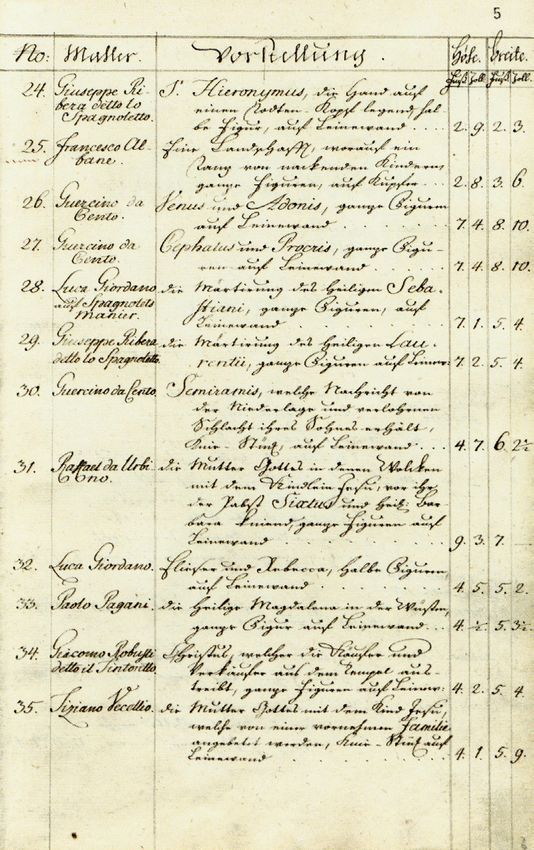 5
No: Mahler. Vorstellung. Höhe. Breite.
Fuß Zoll. Fuß Zoll.
24. Giuseppe Ri- S. Hieronymus, die Hand auf
bera detto lo einen Todten-Kopf legend, hal-
Spagnoletto. be Figur, auf Leinewand . . . . 2. 9. 2. 3.
25. Francesco Al- Eine Landschafft, worauf ein
bane. Tanz von nackenden Kindern,
ganze Figuren, auf Kupfer . . . 2. 8. 3. 6.
26. Guercino da Venus und Adonis, ganze Figuren
Cento. auf Leinewand . . . . . 7. 4. 8. 10.
27. Guercino da Cephalus und Procris, ganze Figu-
Cento. ren auf Leinewand . . . . . 7. 4. 8. 10.
28. Luca Giordano die Martirung des Heiligen Seba-
auf Spagnolets stiani, ganze Figuren, auf
Manier. Leinewand . . . . . 7. 1. 5. 4.
29. Giuseppe Ribera die Martirung des Heiligen Lau-
detto lo Spagnoletto. rentii, ganze Figuren auf Leinew: 7. 2. 5. 4.
30. Guercino da Cento. Semiramis, welche Nachricht von
der Niederlage und verlohrnen
Schlacht ihres Sohnes erhält,
Knie-Stück, auf Leinewand . . . 4. 7. 6. 2½
31. Raffael da Urbi- die Mutter Gottes in denen Wolcken
no. mit dem Kindlein Jesu, vor ihr
der Pabst Sixtus und Heil: Bar-
bara kniend, ganze Figuren auf
Leinewand . . . . . 9. 3. 7. —
32. Luca Giordano. Elieser und Rebecca, Halbe Figuren
auf Leinewand . . . . . 4. 5. 5. 2.
33. Paolo Pagani. die Heilige Magdalena in der Wüsten,
ganze Figur auf Leinewand . . . 4. ½. 5. 3½
34. Giacomo Robusti Christus, welcher die Käufer und
detto il Tintoretto. Verkäufer aus dem Tempel aus-
treibt, ganze Figuren auf Leinew: 4. 2. 5. 4.
35. Tiziano Vecellio. die Mutter Gottes mit dem Kind Jesu,
welche von einer vornehmen Familie
angebetet werden, Knie-Stück auf
Leinewand . . . . . 4. 1. 5. 9.